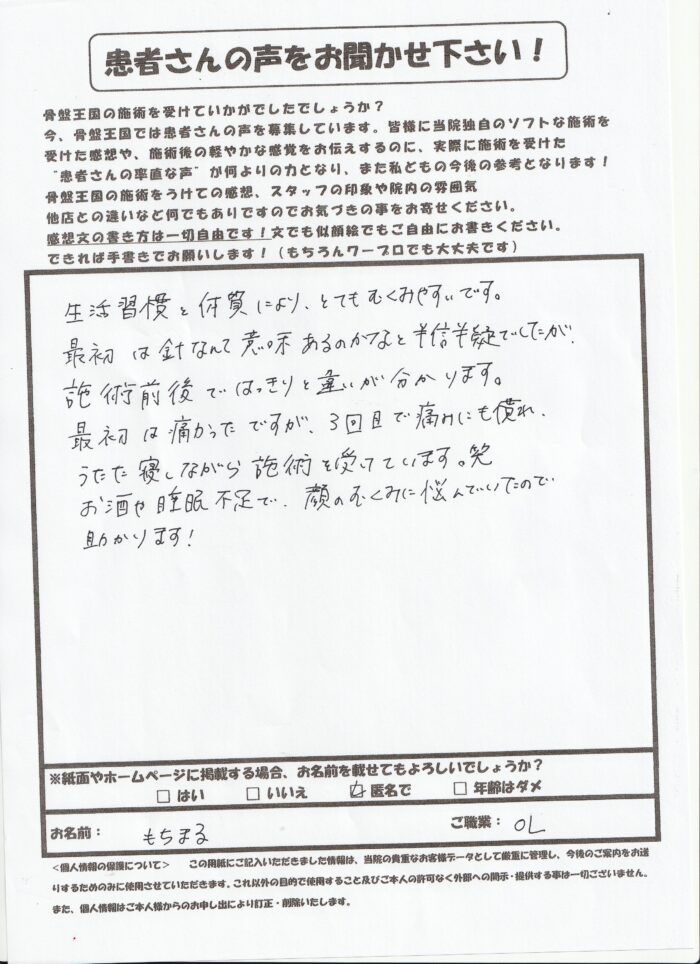 患者さんの声をお聞かせ下さい！
骨盤王国の施術を受けていかがでしたでしょうか？
今、骨盤王国では患者さんの声を募集しています。皆様に当院独自のソフトな施術を
受けた感想や、施術後の軽やかな感覚をお伝えするのに、実際に施術を受けた
“患者さんの率直な声”が何よりの力となり、また私どもの今後の参考となります！
骨盤王国の施術をうけての感想、スタッフの印象や院内の雰囲気
他店との違いなど何でもありですのでお気づきの事をお寄せください。
感想文の書き方は一切自由です！文でも似顔絵でもご自由にお書きください。
できれば手書きでお願いします！（もちろんワープロでも大丈夫です）
生活習慣と体質により、とてもむくみやすいです。
最初は針なんて意味あるのかなと半信半疑でしたが、
施術前後ではっきりと違いが分かります。
最初は痛かったですが、3回目で痛みにも慣れ、
うたた寝しながら施術を受けています。笑
お酒や睡眠不足で、顔のむくみに悩んでいたので
助かります！
※紙面やホームページに掲載する場合、お名前を載せてもよろしいでしょうか？
□ はい □ いいえ ☑ 匿名で □ 年齢はダメ
お名前： もちまる ご職業： OL
＜個人情報の保護について＞ この用紙にご記入いただきました情報は、当院の貴重なお客様データとして厳重に管理し、今後のご案内をお送
りするためのみに使用させていただきます。これ以外の目的で使用すること及びご本人の許可なく外部への開示・提供する事は一切ございません。
また、個人情報はご本人様からのお申し出により訂正・削除いたします。